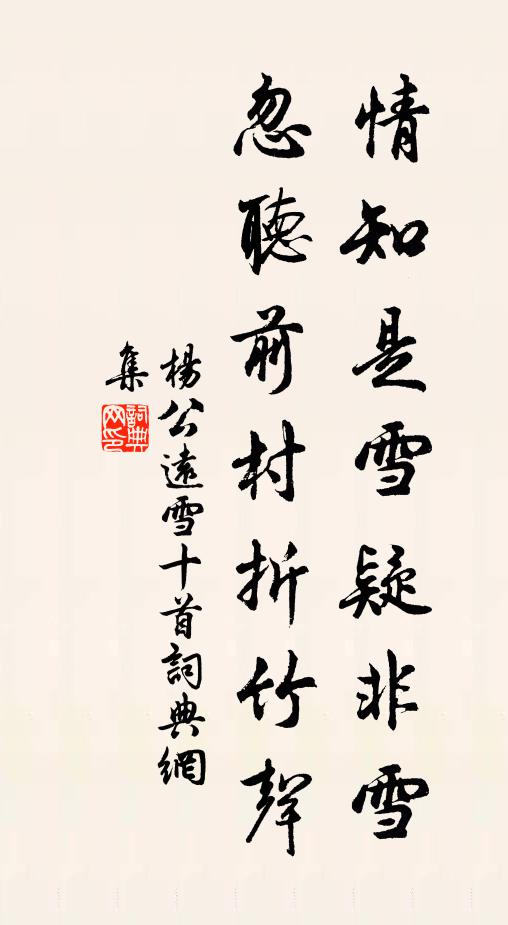 情知是雪疑非雪
忽聽前村折竹聲
楊公遠雪十首詞典網
集
詞典網印